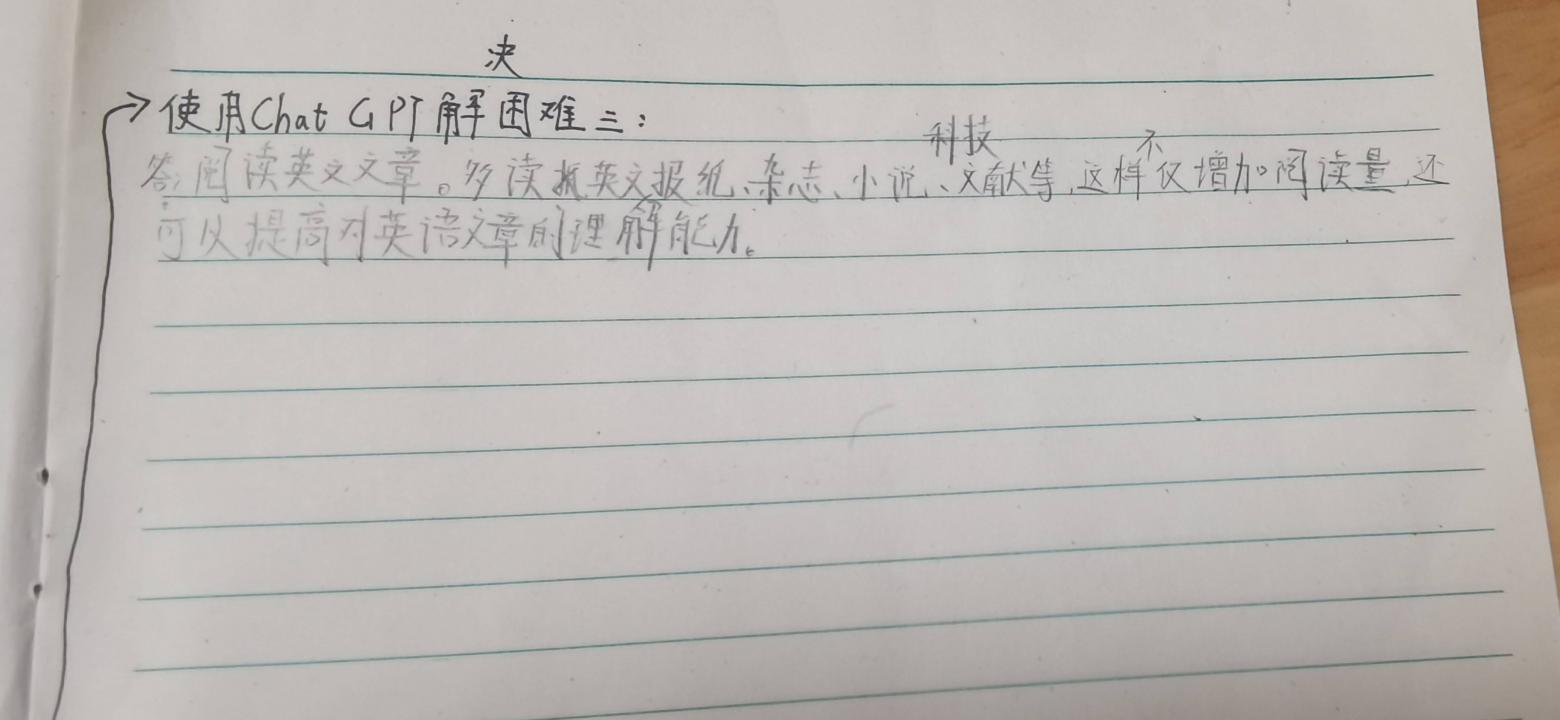 决
使用Chat GPT解困难三：
科技 不
答：阅读英文文章。多读抵英文报纸、杂志、小说、文献等，这样仅增加阅读量，还
可以提高对英语文章的理解能力。